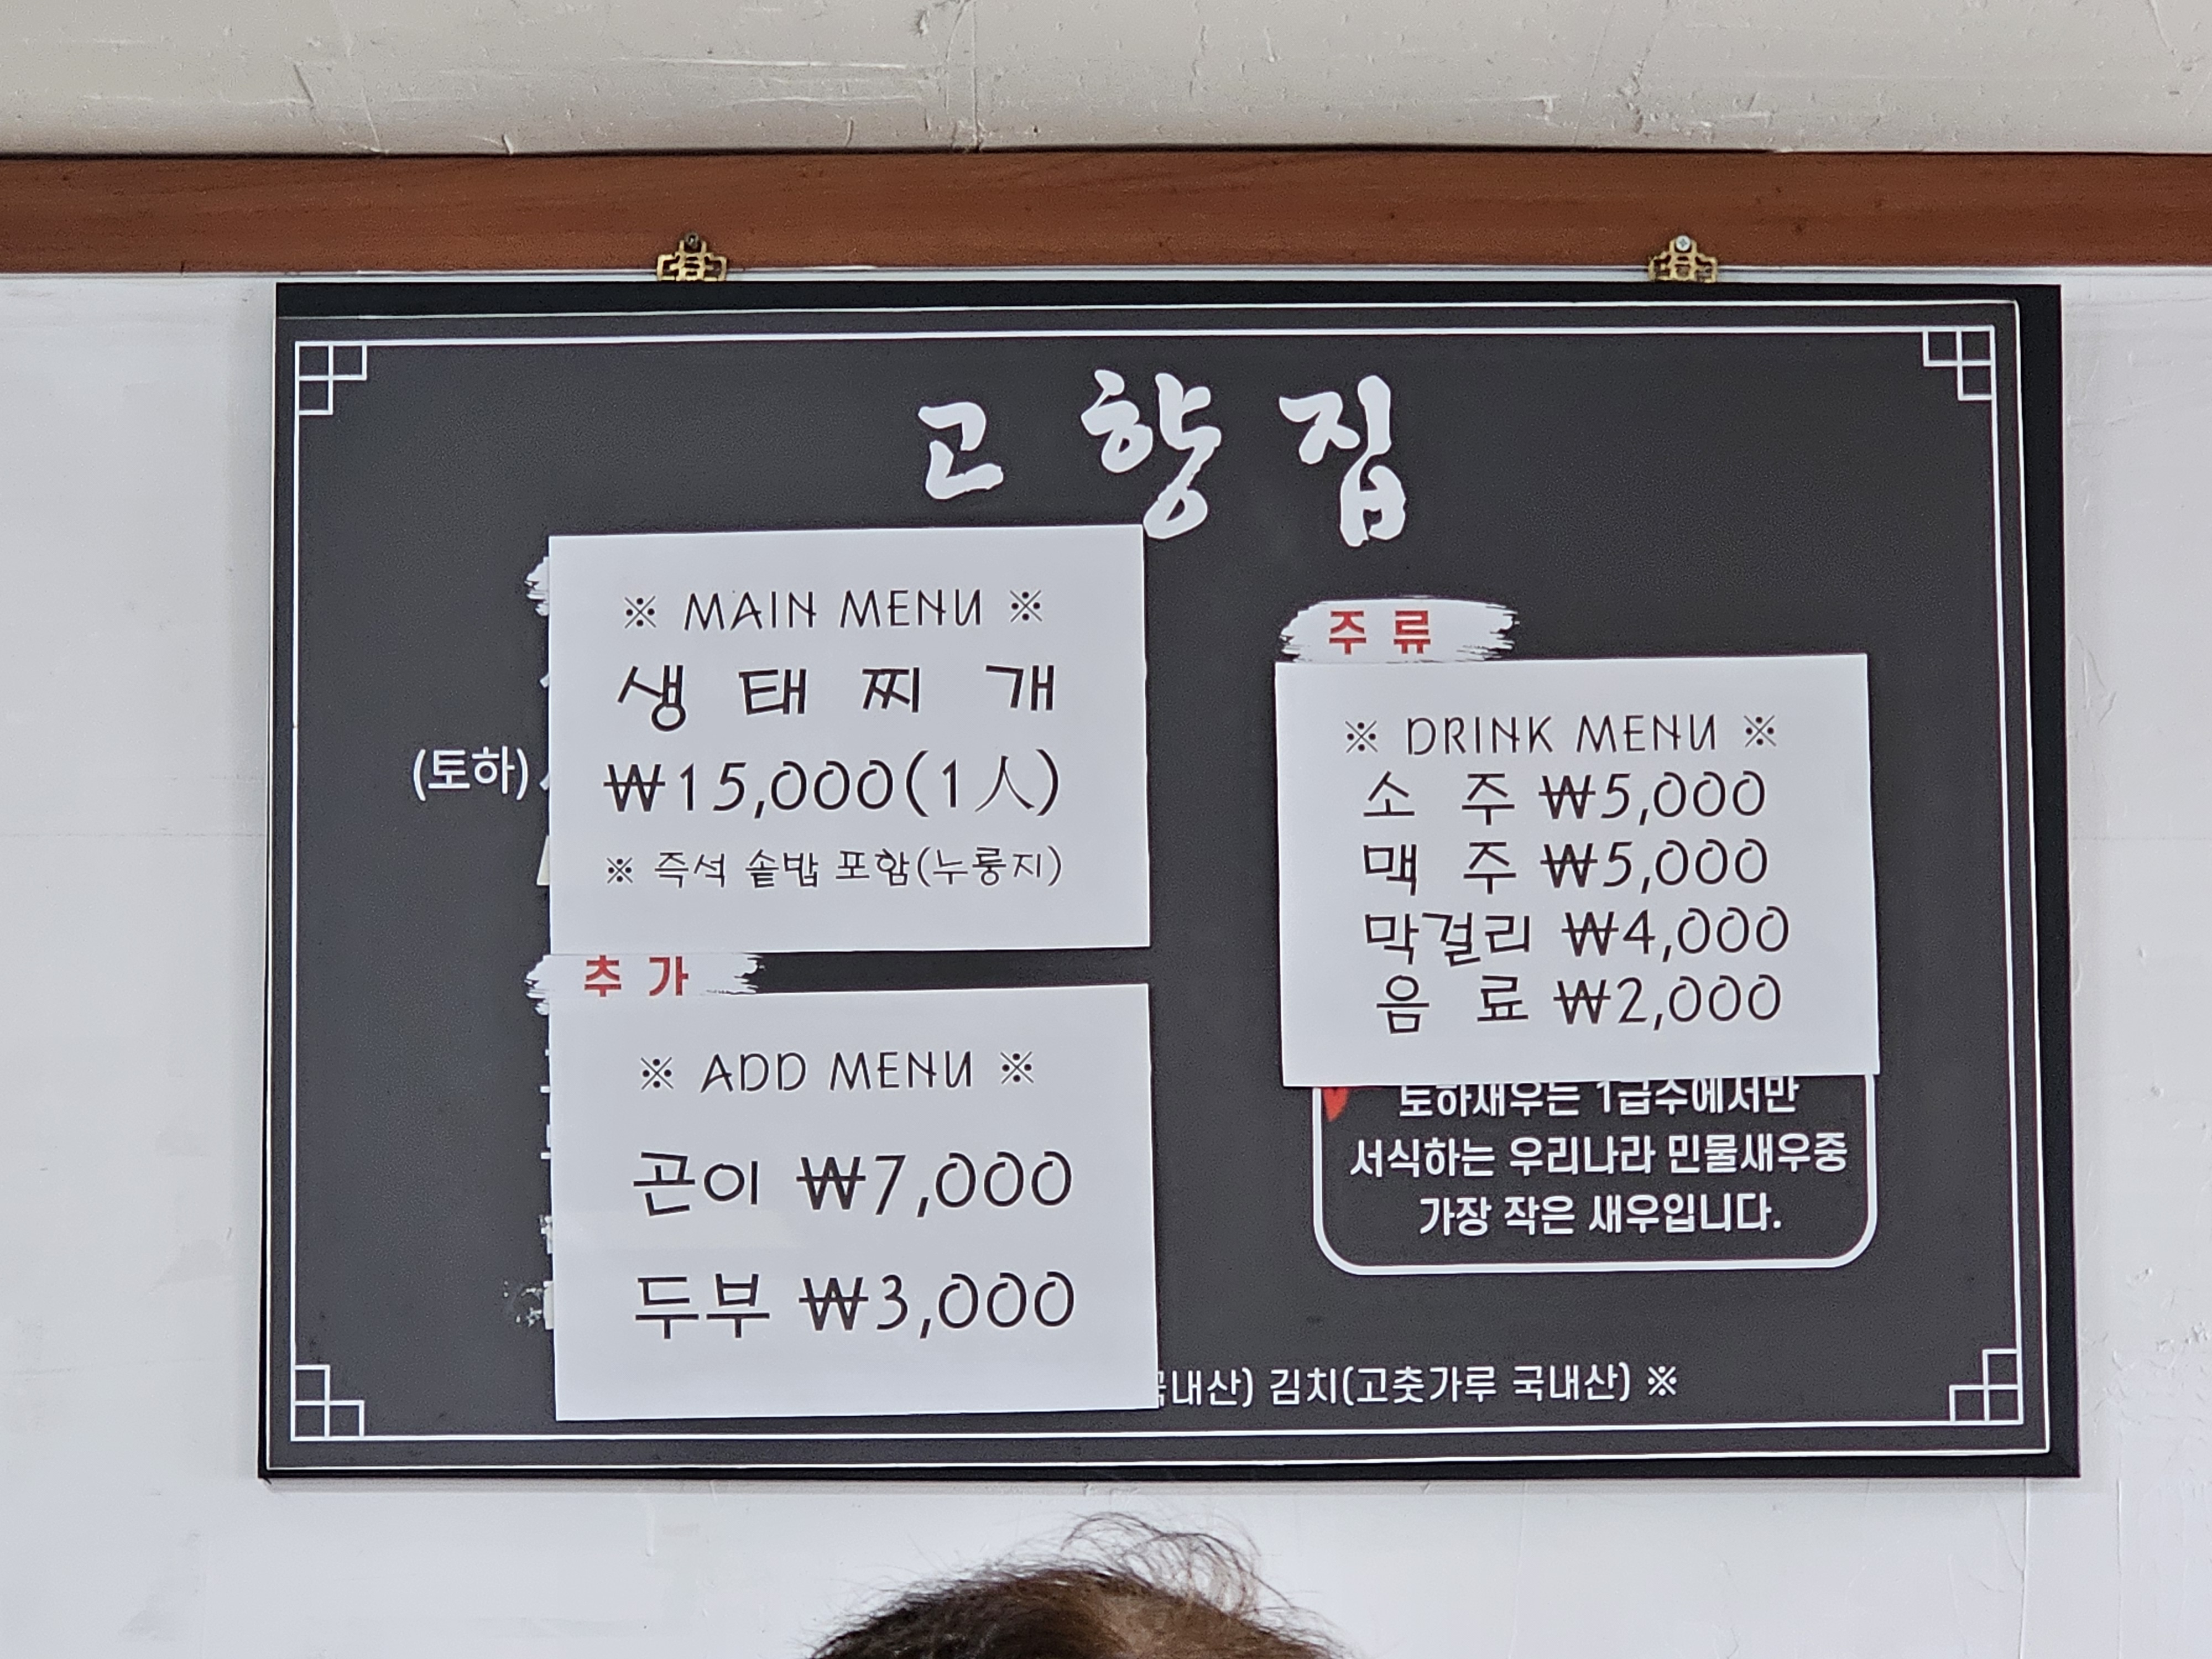 고향집
※ MAIN MENU ※
생태찌개
₩15,000(1人)
※ 즉석 솥밥 포함(누룽지)
(토하)
추가
※ ADD MENU ※
곤이 ₩7,000
두부 ₩3,000
주류
※ DRINK MENU ※
소주 ₩5,000
맥주 ₩5,000
막걸리 ₩4,000
음료 ₩2,000
토하새우는 1급수에서만
서식하는 우리나라 민물새우중
가장 작은 새우입니다.
국내산) 김치(고춧가루 국내산) ※